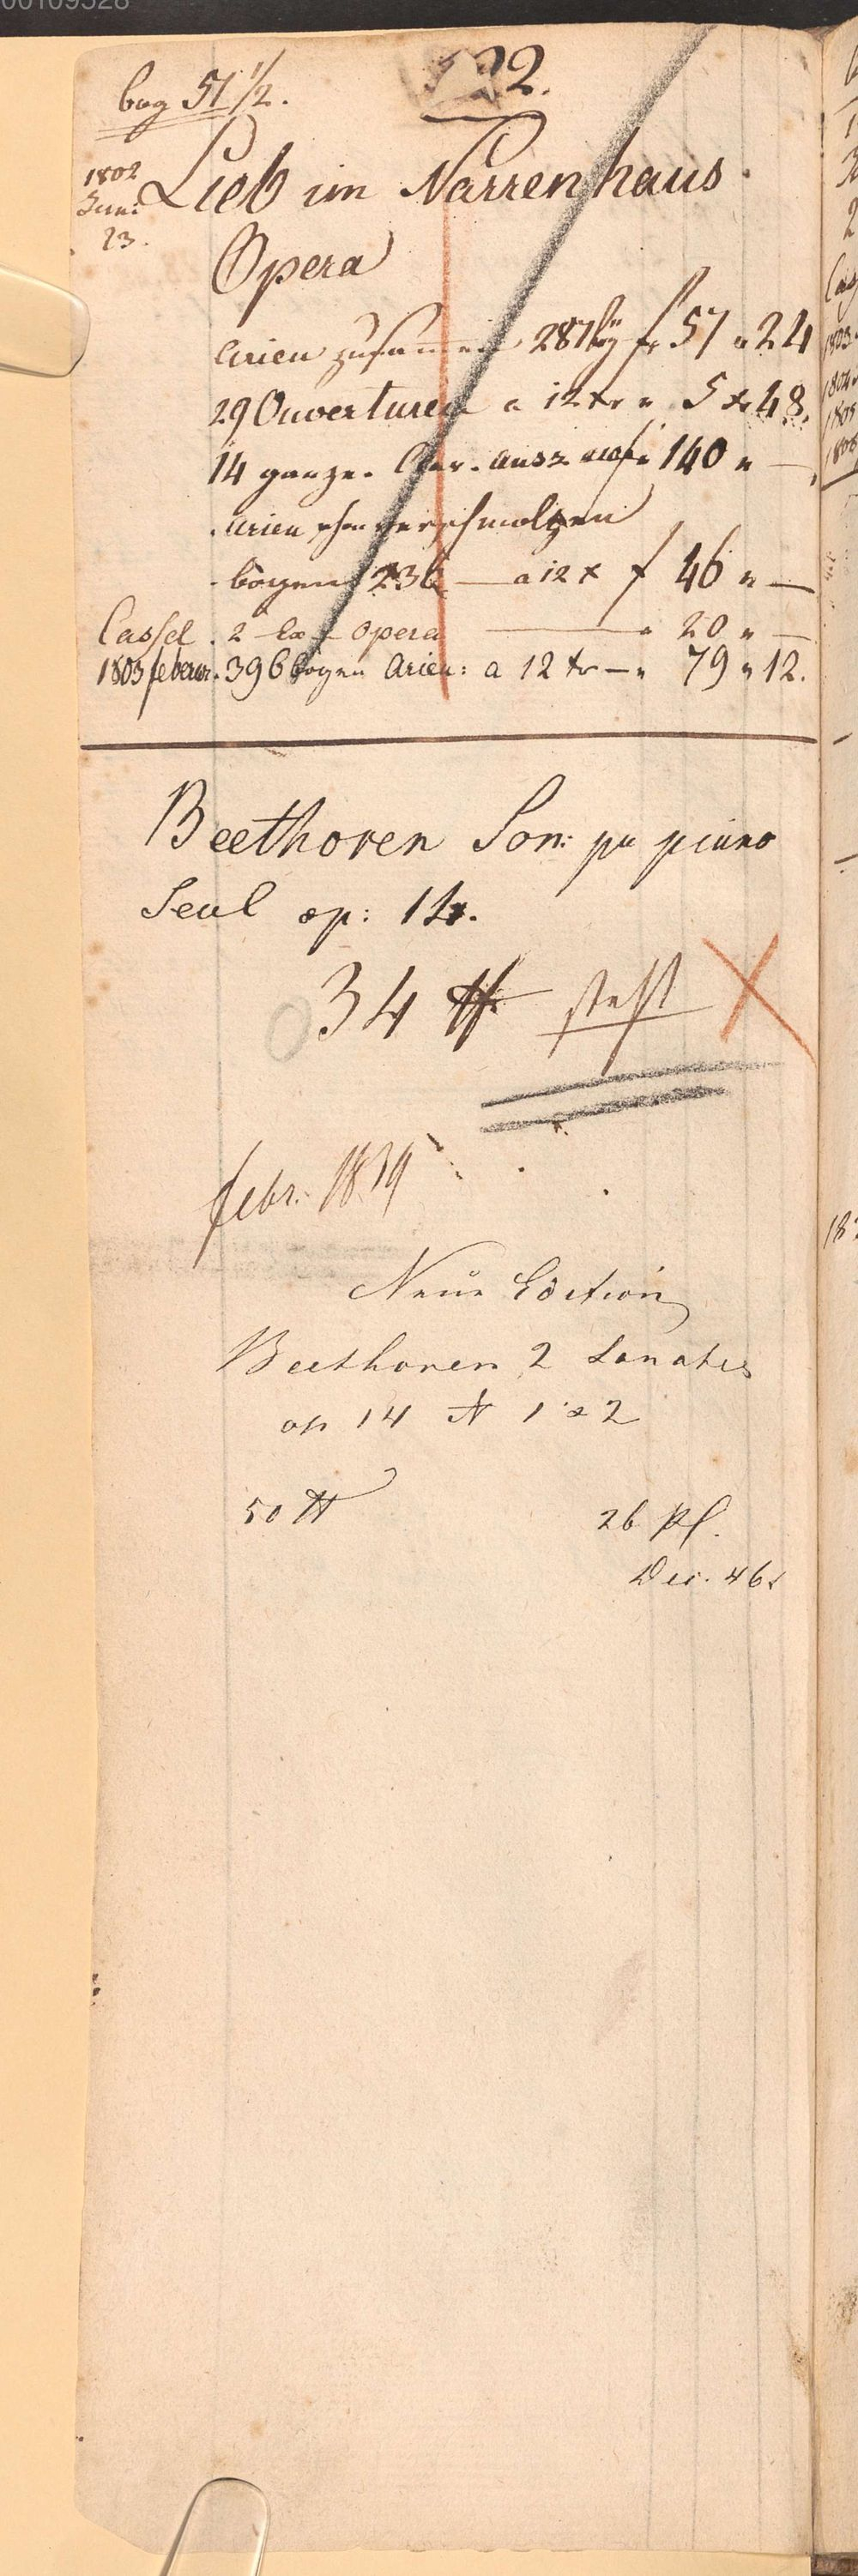 00109528
bog 51 1/2. 122.
1802 Lieb im Narrenhaus.
Juni
23.
Opera
Arien zusammen 287 bg fr 57 " 24
29 Ouverturen a 12 xr " 5 x 48.
14 ganze. ausz 140 " —
Arien verschmolzen
bögen 236 — a 12 x f 46 " —
Cassel . 2 Ex Opera — " 20 " —
1803 feberur. 396 bögen Arien: a 12 xr — " 79 " 12.
Beethoven Son: pu piano
Seul op: 14.
34 steht
febr. 1839
Neue Edition
Beethoven 2 Sonates
op 14 N 1 & 2
50
26 Pl.
Dec. 46